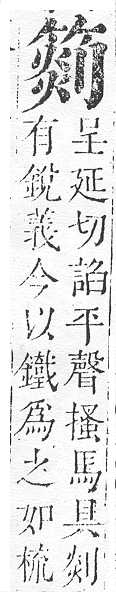 呈延切諂平聲搔馬具剡
有銳義今以鐵爲之如梳